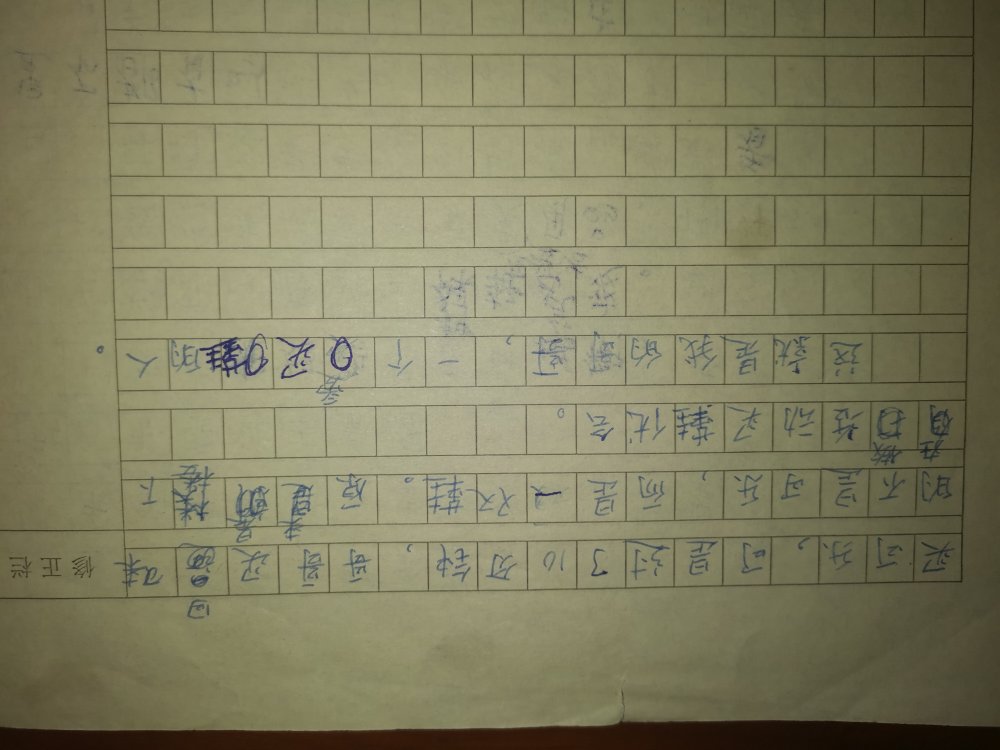 买可乐，可是过了10分钟，哥哥买回来
的不是可乐，而是一双鞋。原来楼下
在做活动买鞋优会。
这就是我的哥哥，一个爱买鞋的人。
修正栏